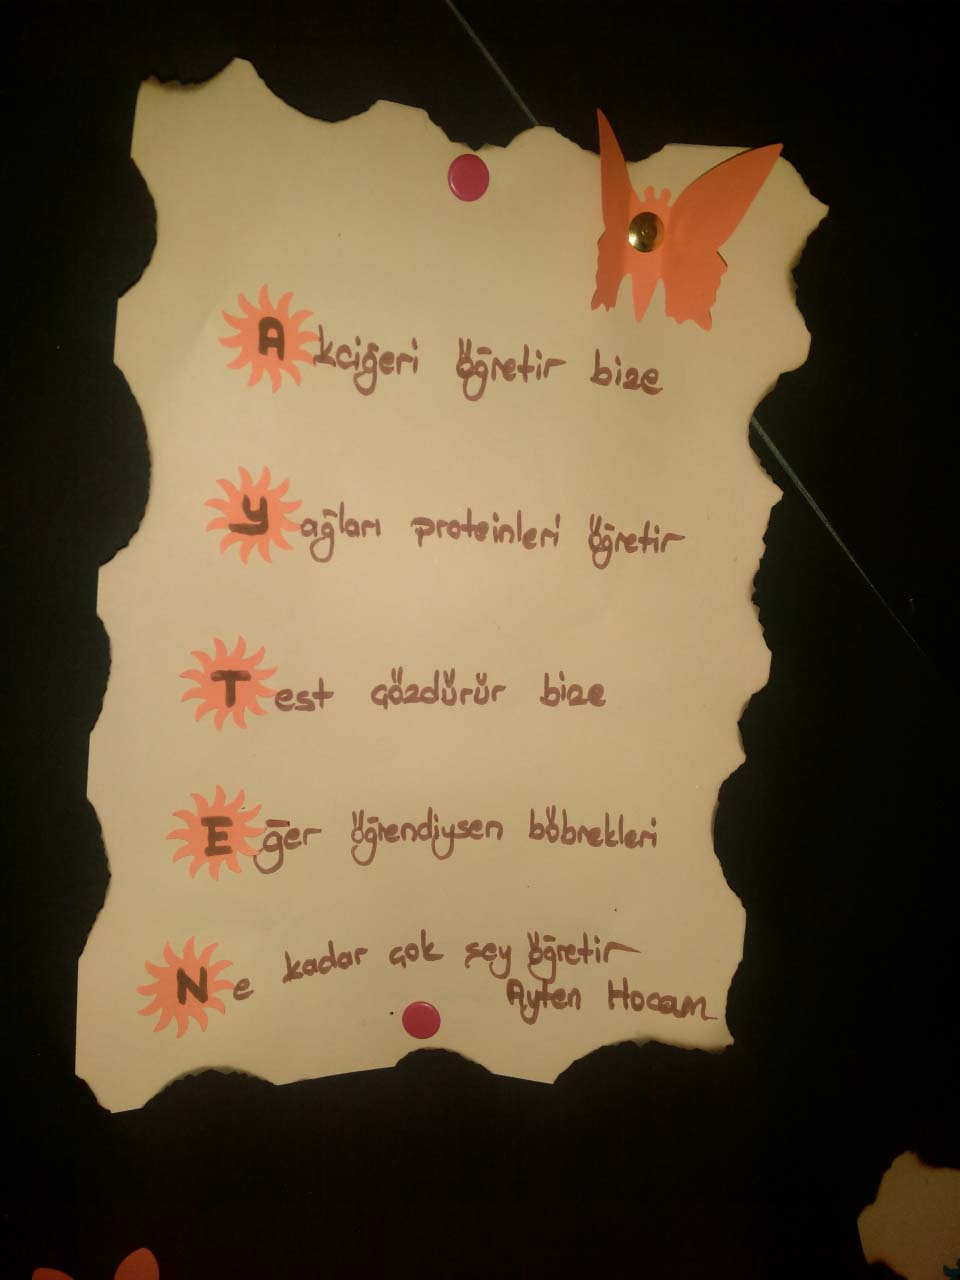 Akciğeri öğretir bize
Yağları proteinleri öğretir
Test çözdürür bize
Eğer öğrendiysen böbrekleri
Ne kadar çok şey öğretir
Ayten Hocam